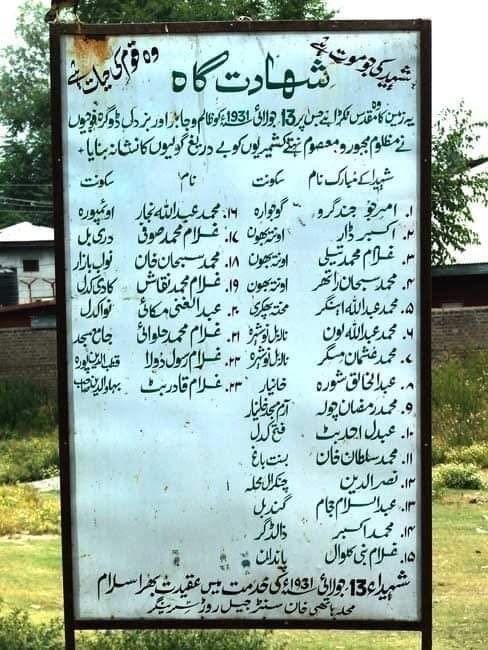 شہید کی جو موت ہے
وہ قوم کی حیات ہے
شہادت گاہ
یہ زمین کا وہ مقدس ٹکڑا ہے جس پر 13 جولائی 1931ء کو ظالم و جابر اور بزدلی ڈوگرہ فوجیوں
نے مظلوم مجبور و معصوم نہتے کشمیریوں کو بے دریغ گولیوں کا نشانہ بنایا۔
شہدا کے مبارک نام سکونت نام سکونت
۱۔ امیر جو جندگرو گوجوارہ
۲۔ اکبر ڈار اونتہ بھون
۳۔ غلام محمد تیلی اونتہ بھون
۴۔ محمد سبحان راتھر اونتہ بھون
۵۔ محمد عبداللہ آہنگر محلہ بچھری
۶۔ محمد عبداللہ لون نایدیل نوشہرہ
۷۔ محمد عثمان مسگر نایدیل نوشہرہ
۸۔ عبدالخالق شورہ خانیار
۹۔ محمد رمضان چولہ آرم مسجد خانیار
۱۰۔ عبدل احد بٹ فتح کدل
۱۱۔ محمد سلطان خان بسنت باغ
۱۲۔ نصر الدین چنکرال محلہ
۱۳۔ عبدالسلام حجام گندبل
۱۴۔ محمد اکبر ڈالگر
۱۵۔ غلام نبی کلوال پاندان
۱۶۔ محمد عبداللہ نجار اومپورہ
۱۷۔ غلام محمد صوفی دری بل
۱۸۔ محمد سبحان خان نواب بازار
۱۹۔ غلام محمد نقاش کادی کدل
۲۰۔ عبدالغنی مسکائی نوا کدل
۲۱۔ غلام محمد حلوائی جامع مسجد
۲۲۔ غلام رسول دورا قطب الدین پورہ
۲۳۔ غلام قادر بٹ بہاؤ الدین صاحب
شہیداء 13 جولائی 1931ء کی خدمت میں عقیدت بھرا سلام
محلہ ہاتھی خان سنٹرجیل روڑ سرینگر